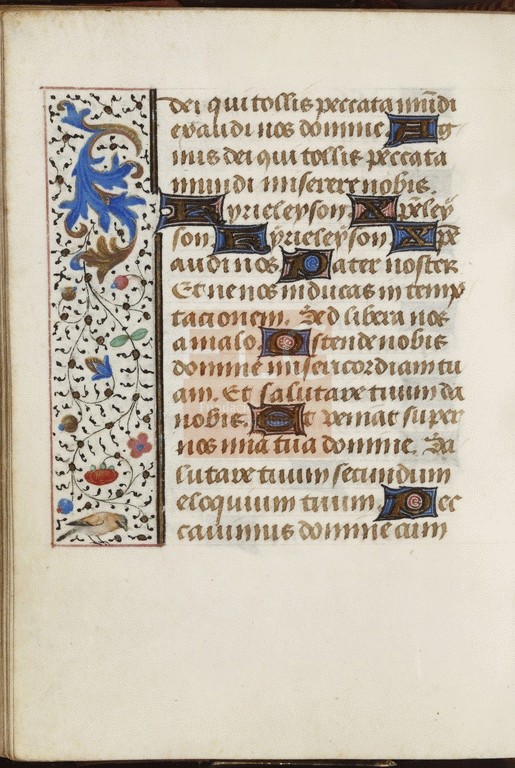 dei qui tollis peccata mūdi
exaudi nos domine. Ag
nus dei qui tollis peccata
mundi miserere nobis.
Kyrieleyson. Xp̄eley
son. Kyrieleyson. Xp̄e
audi nos. Pater noster
Et ne nos inducas in temp
tacionem. Sed libera nos
a malo. Ostende nobis
domine misericordiam tu
am. Et salutare tuum da
nobis. Et veniat super
nos mīa tua domine. Sa
lutare tuum secundum
eloquium tuum. Pec
cauimus domine cum